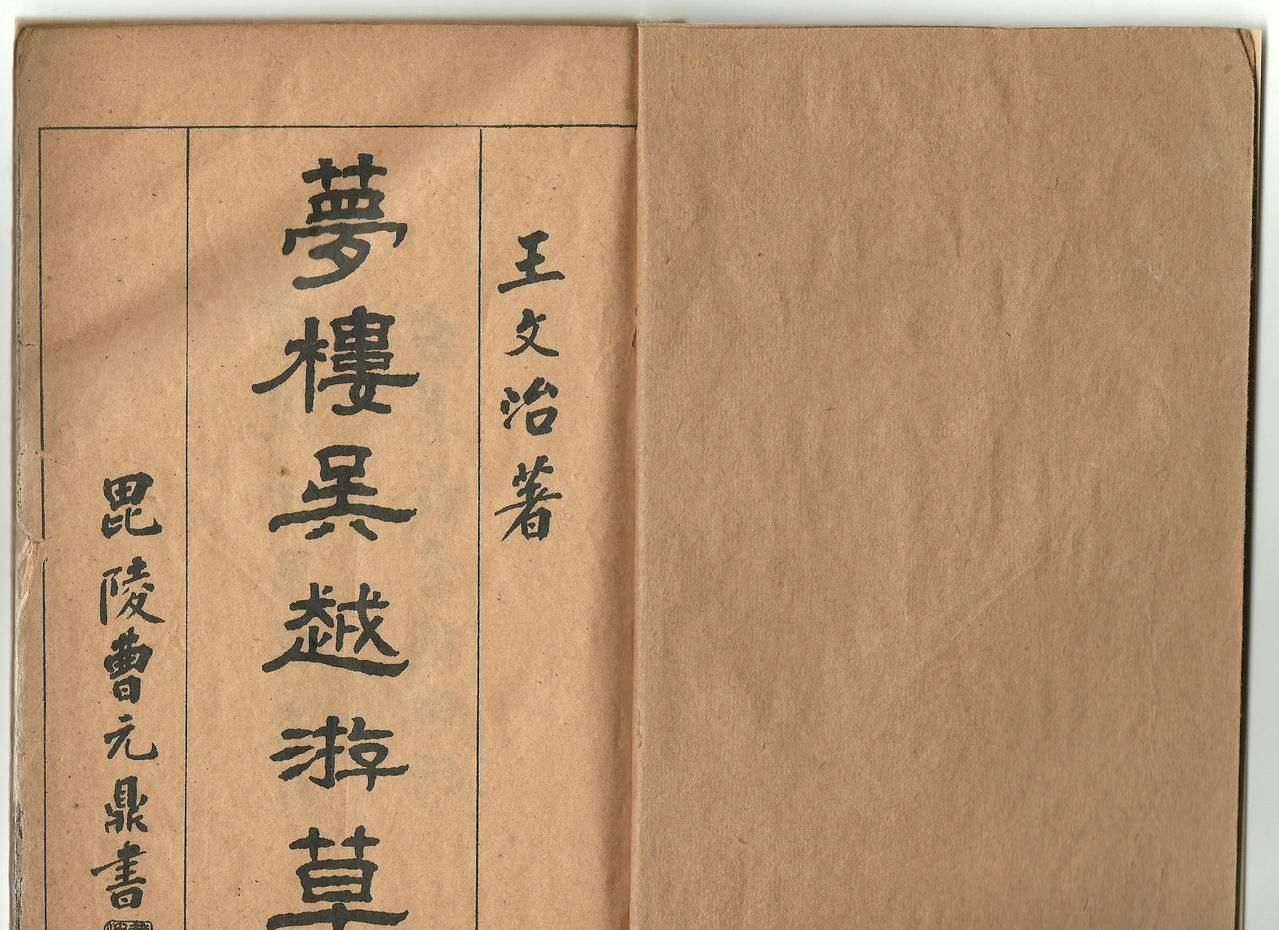 王文治著
夢樓吴越游草
毘陵曹元鼎書